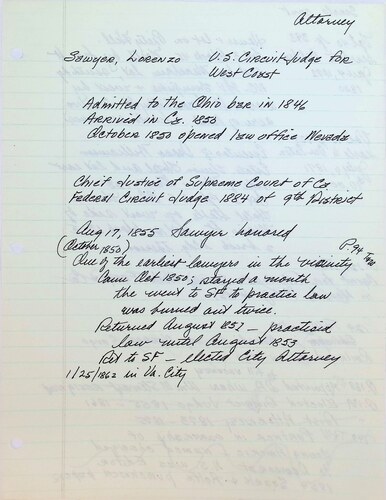 Attorney
Sawyer, Lorenzo U.S. Circuit Judge for
West Coast
Admitted to the Ohio bar in 1846
Arrived in Ca. 1850
October 1850 opened law office Nevada
Chief Justice of Supreme Court of Ca
Federal Circuit Judge 1884 of 9th District
Aug 17, 1855 Sawyer honored
(October 1850) P. 94
One of the earliest lawyers in the vicinity
Came Oct 1850; stayed a month
the went to SF to practice law
was burned out twice.
Returned August 1851 – practiced
law until August 1853
Ret to SF – elected City Attorney
1/25/1862 in Va. City